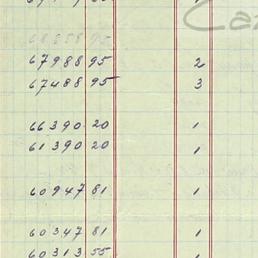 Ca
68858 95
67988 95 2
67488 95 3
66390 20 1
61390 20 1
60947 81 1
60347 81 1
60313 55 1